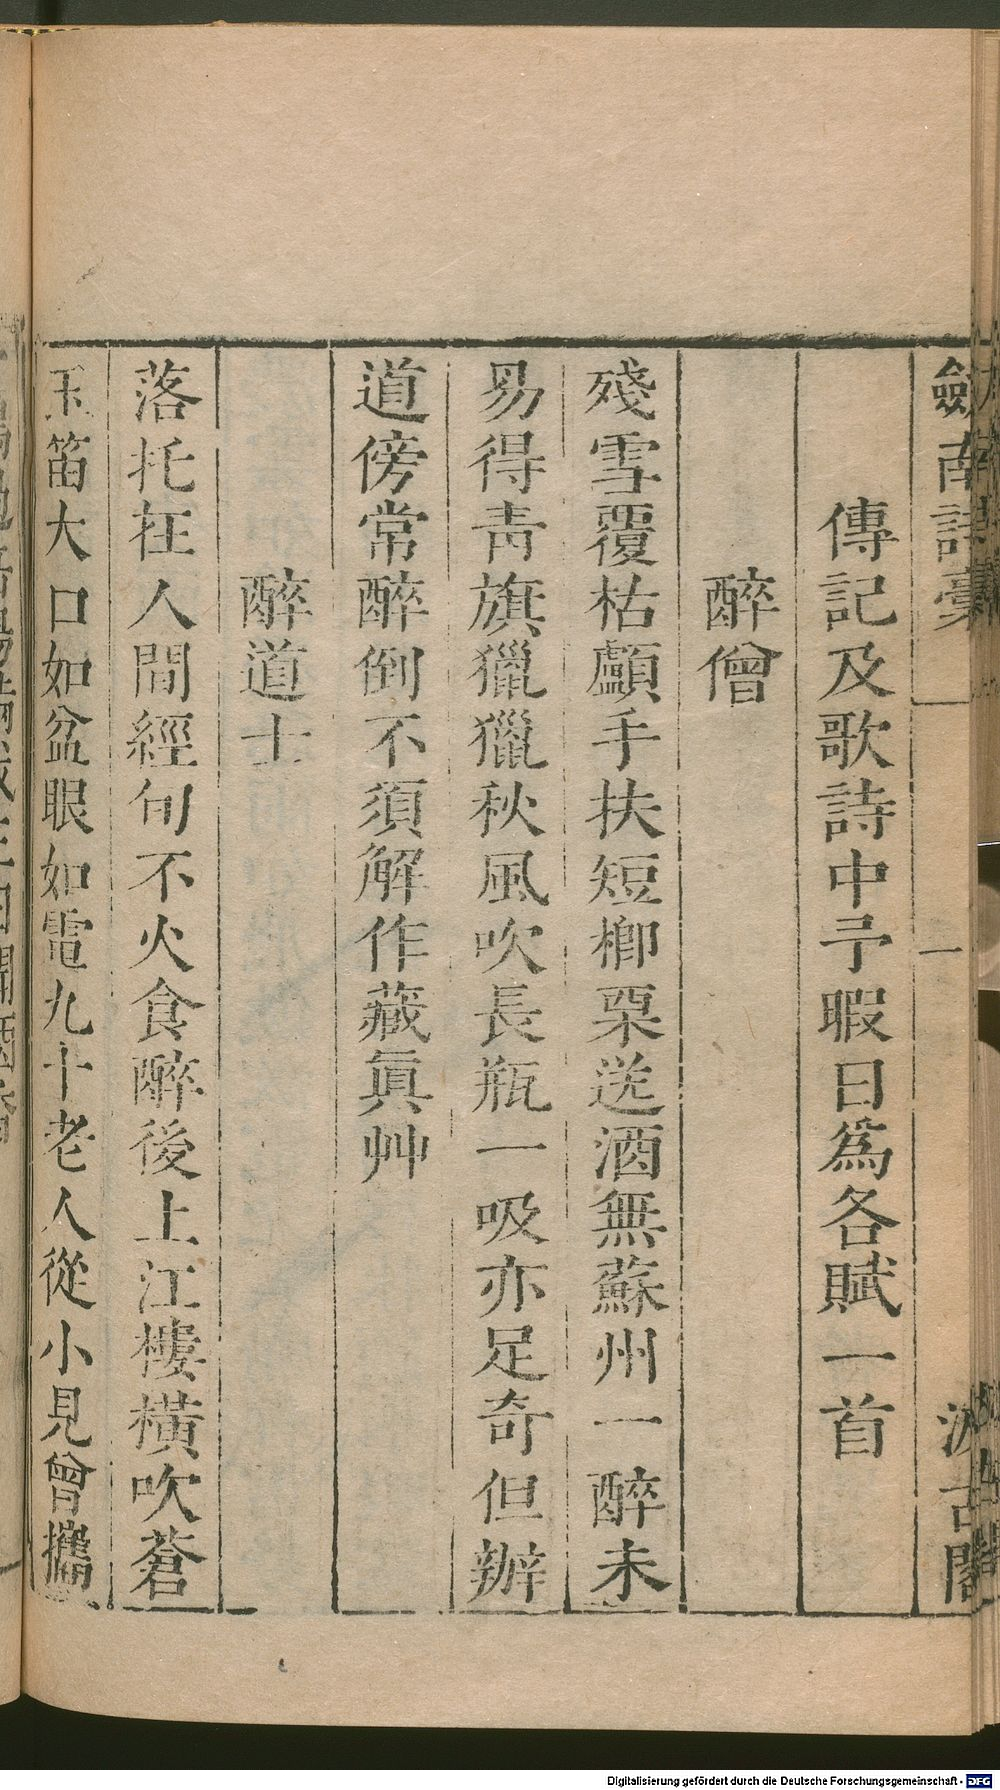 劒南詩稾
一
汲古閣
傳記及歌詩中予暇日爲各賦一首
醉僧
殘雪覆枯顱手扶短楖栗送酒無蘇州一醉未
易得靑旗獵獵秋風吹長瓶一吸亦足奇但辦
道傍常醉倒不須解作藏眞艸
醉道士
落托在人間經旬不火食醉後上江樓橫吹蒼
玉笛大口如盆眼如電九十老人從小見曾攜
Digitalisierung gefördert durch die Deutsche Forschungsgemeinschaft - DFG